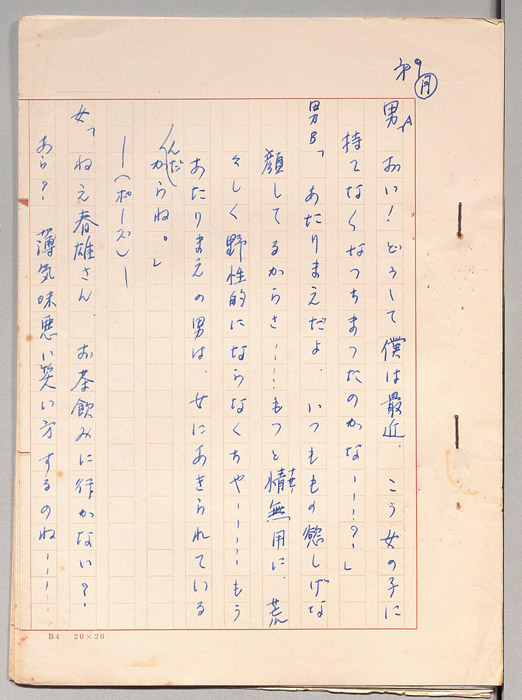 オ9
月
男A「おい！どうして僕は最近、こう女の子に
持てなくなつちまつたのかな……？」
男B「あたりまえだよ、いつももの慾しげな
顔してるからさ……もつと情無用に、荒
々しく野性的にならなくちや……もう
あたりまえの男は、女にあきられている
んだからね。」
―（ポーズ）―
女「ねえ春雄さん、お茶飲みに行かない？
あら？薄気味悪い笑い方するのね……
B4 20×20